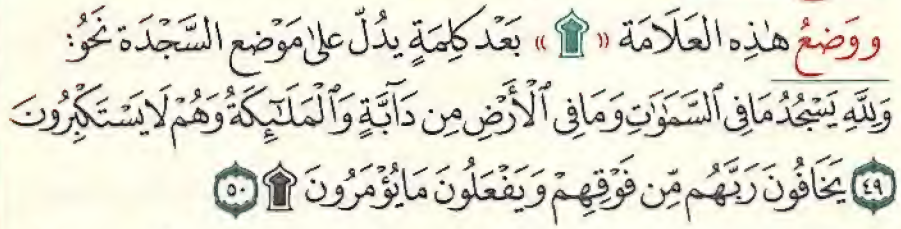 ووَضعُ هٰذِه العَلَامَة « ۩ » بَعْد كَلِمَةٍ يدُلّ علىٰ مَوْضع السَّجْدَة نَحْوُ:
وَلِلَّهِ يَسْجُدُ مَا فِي ٱلسَّمَٰوَٰتِ وَمَا فِي ٱلْأَرْضِ مِن دَآبَّةٍ وَٱلْمَلَٰٓئِكَةُ وَهُمْ لَا يَسْتَكْبِرُونَ
٤٩ يَخَافُونَ رَبَّهُم مِّن فَوْقِهِمْ وَيَفْعَلُونَ مَا يُؤْمَرُونَ ۩ ٥٠